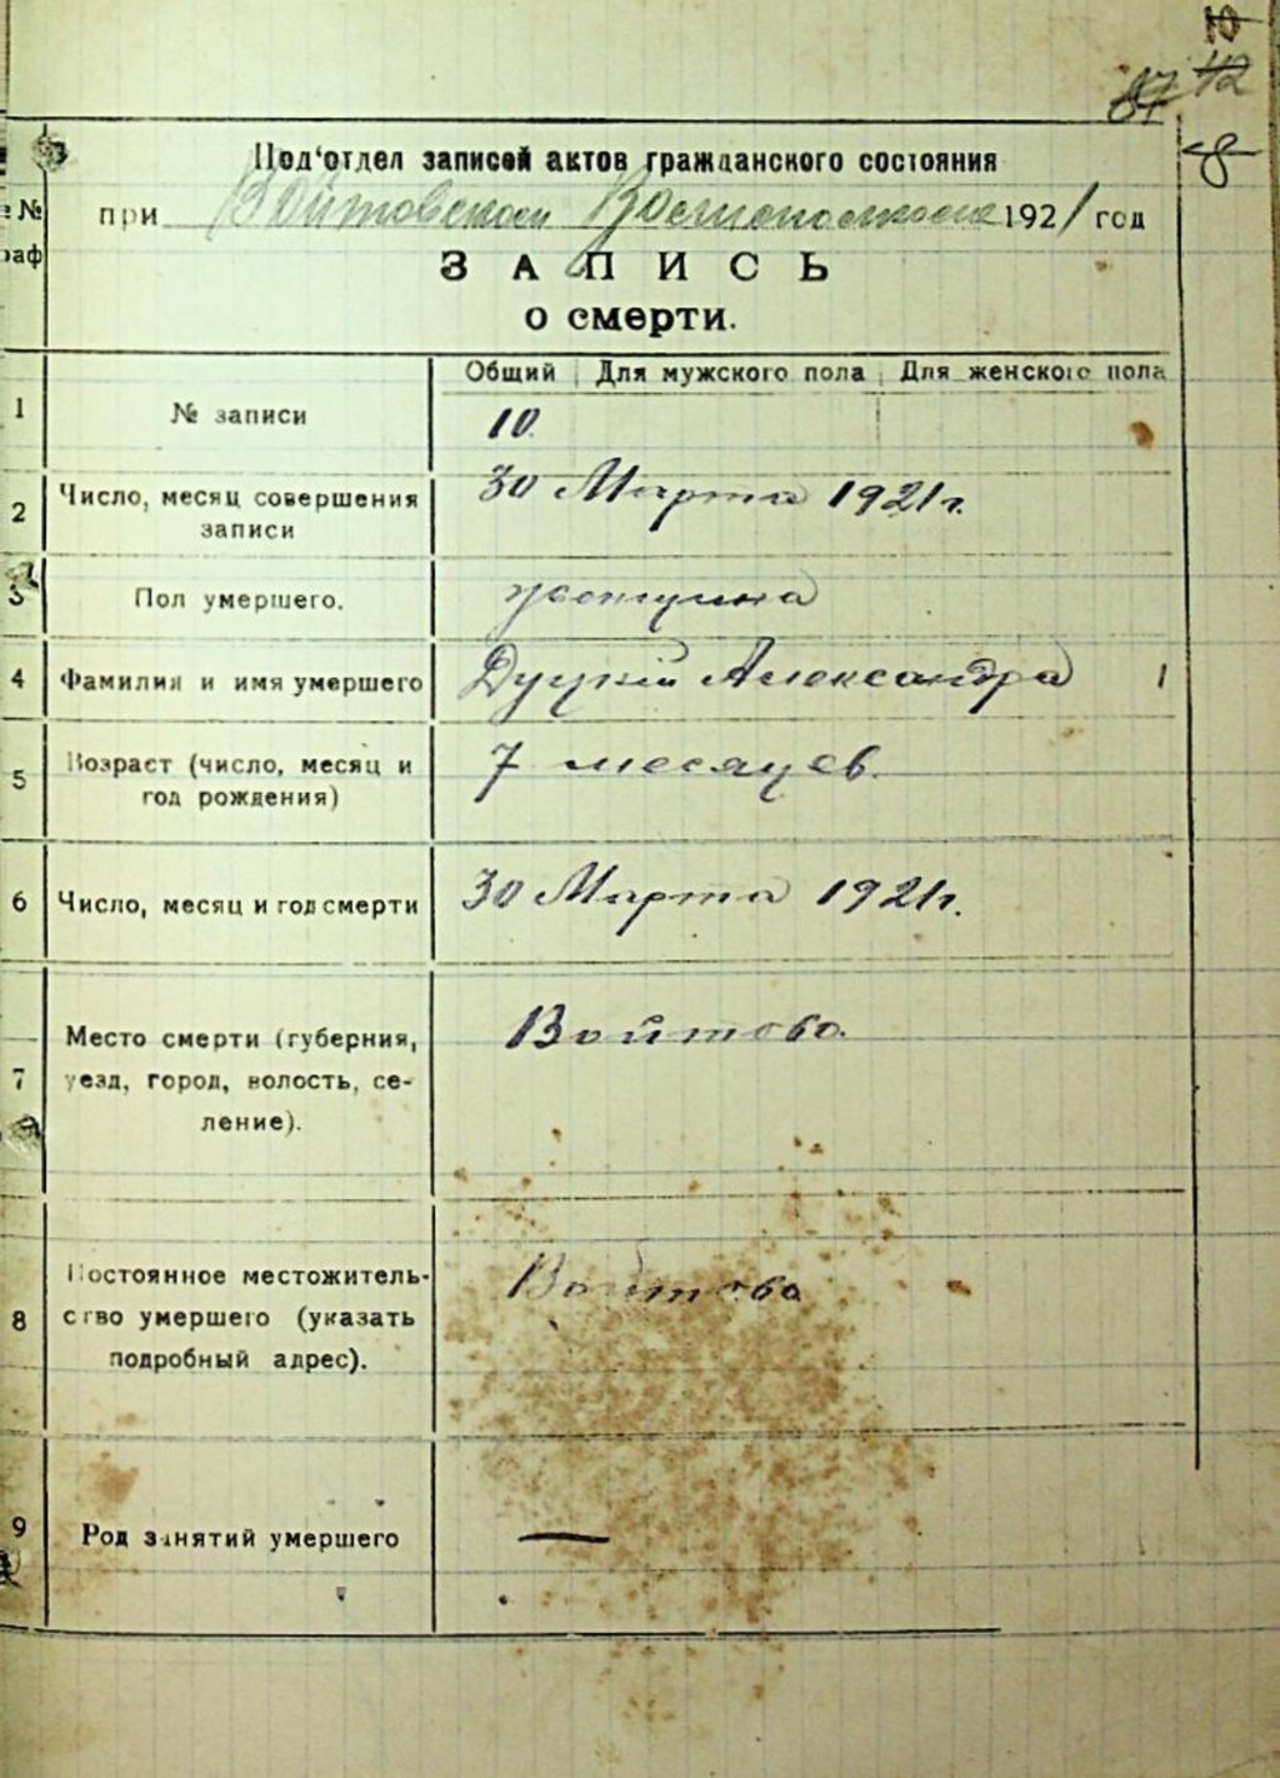 42
8
Под‘отдел записей актов гражданского состояния
при Войтовском Волисполкоме 1921 год
ЗАПИСЬ
о смерти.
№
раф
Общий Для мужского пола Для женского пола
1 № записи 10
2 Число, месяц совершения 30 Марта 1921 г.
записи
3 Пол умершего. женщина
4 Фамилия и имя умершего Александра 1
5 Возраст (число, месяц и 7 месяцев.
год рождения)
6 Число, месяц и год смерти 30 Марта 1921 г.
Место смерти (губерния, Войтово.
7 уезд, город, волость, се-
ление).
Постоянное местожитель- Войтово
8 ство умершего (указать
подробный адрес).
9 Род занятий умершего —